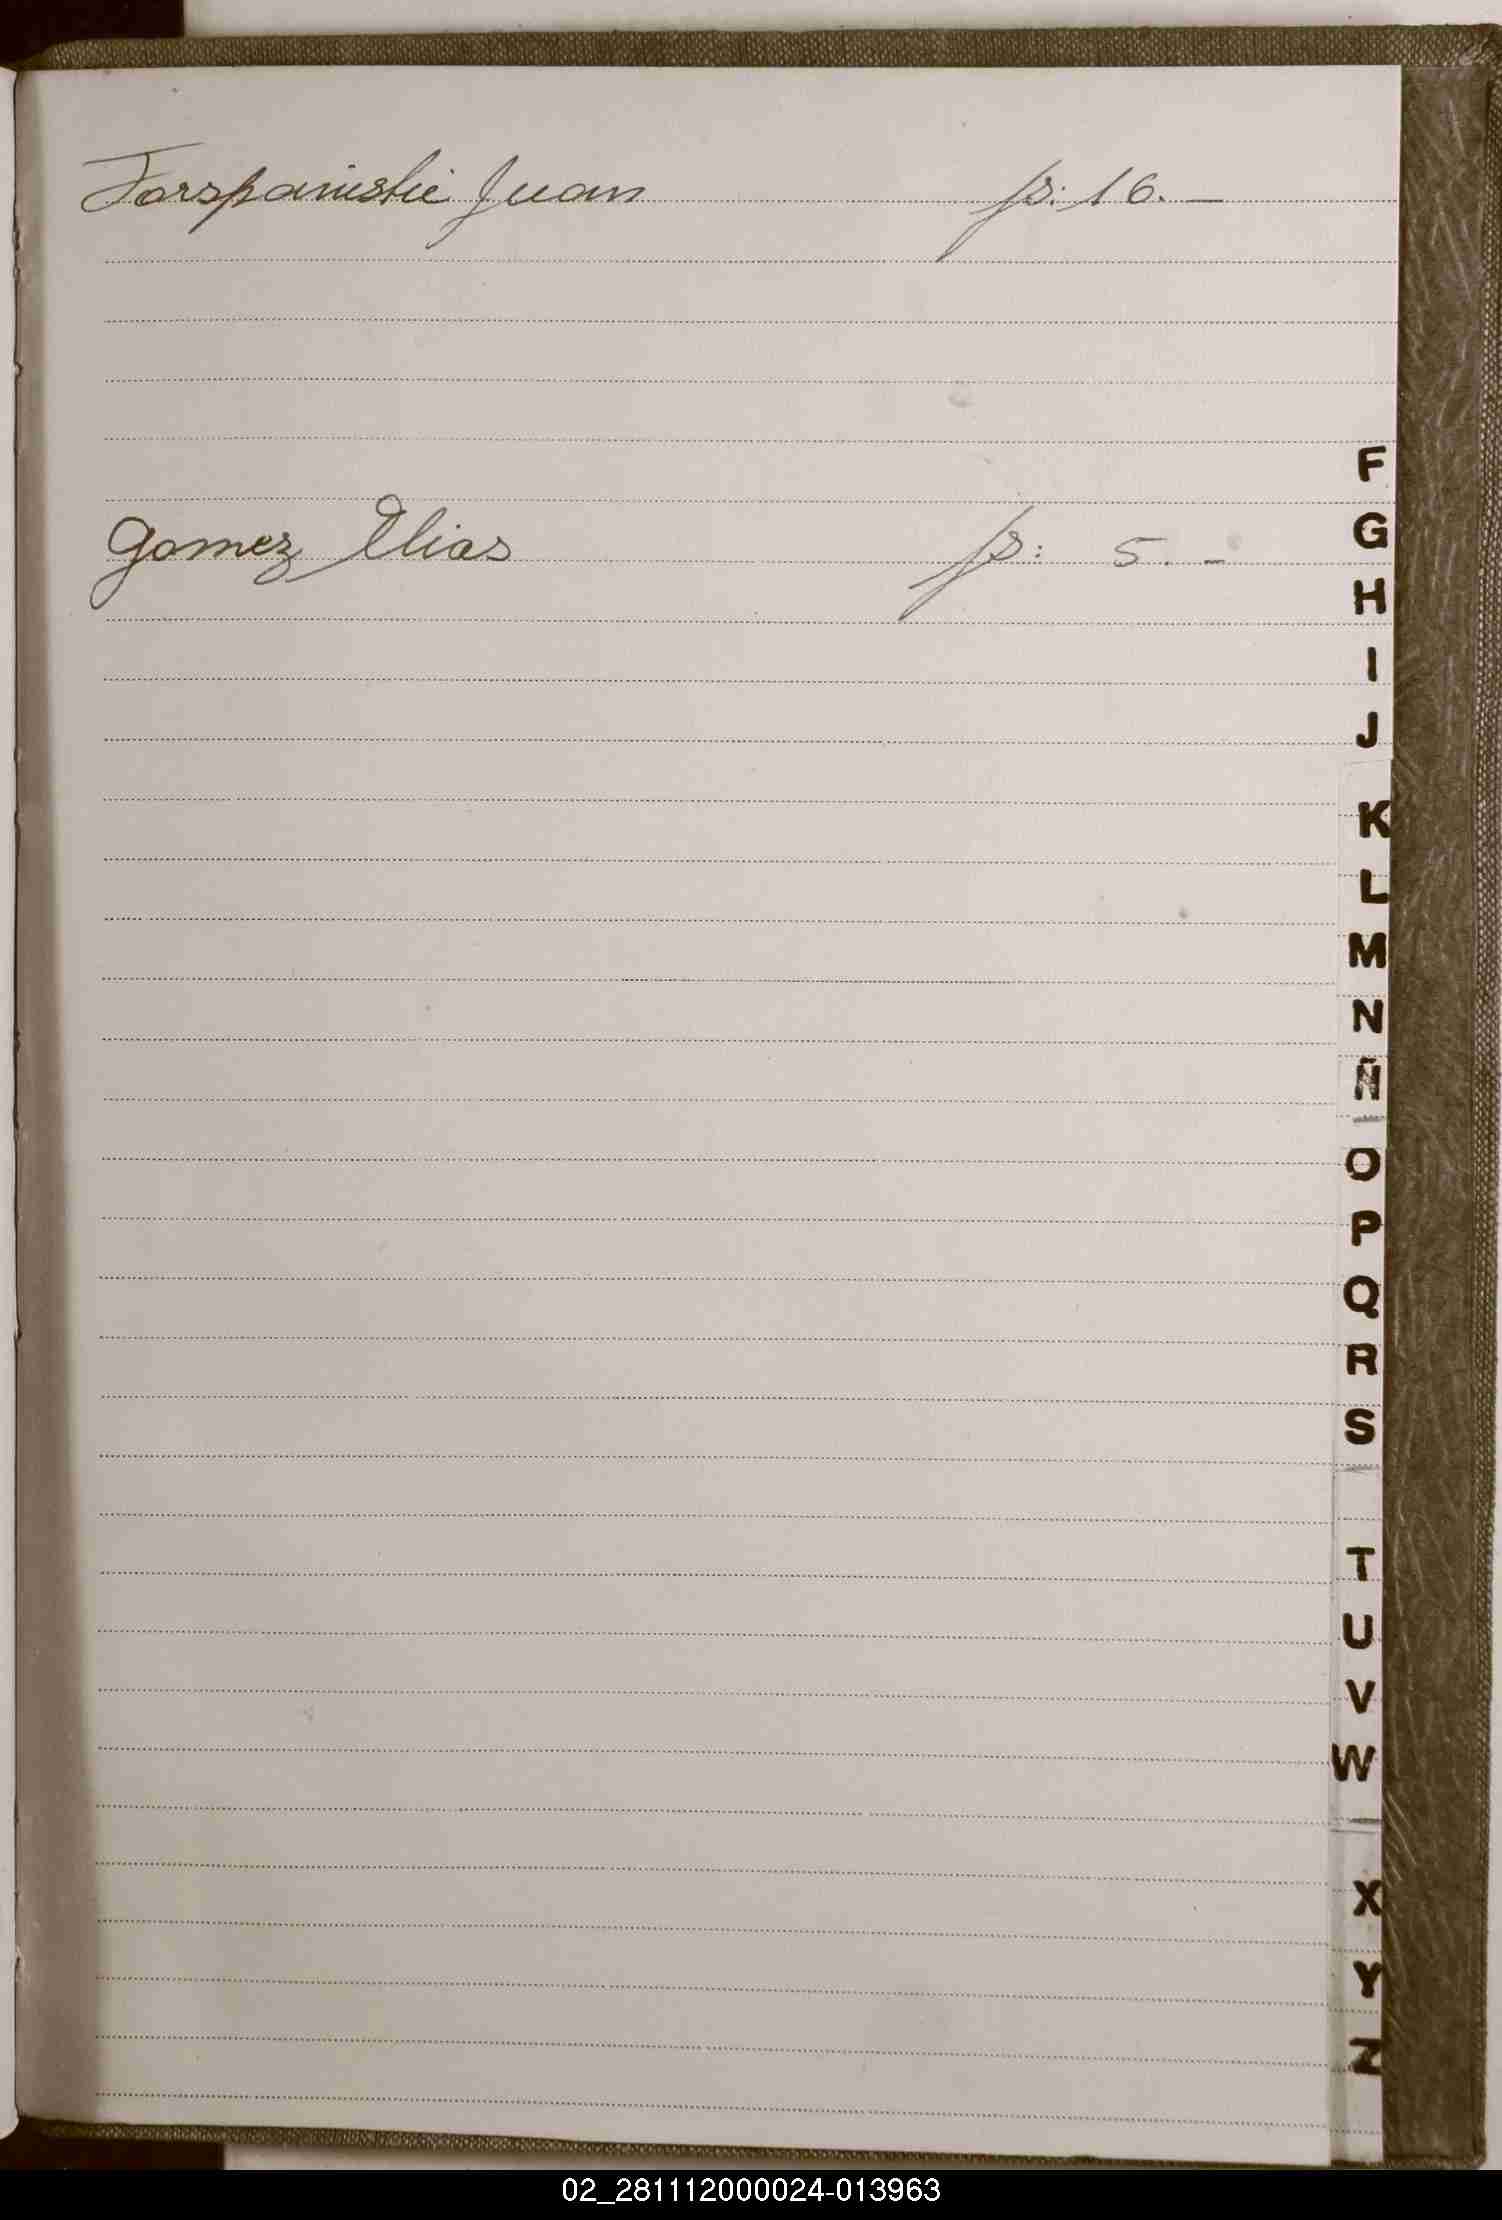 Juan ps: 16. –
Gomez Elias ps: 5. –
F
G
H
I
J
K
L
M
N
Ñ
O
P
Q
R
S
T
U
V
W
X
Y
Z
02_281112000024-013963